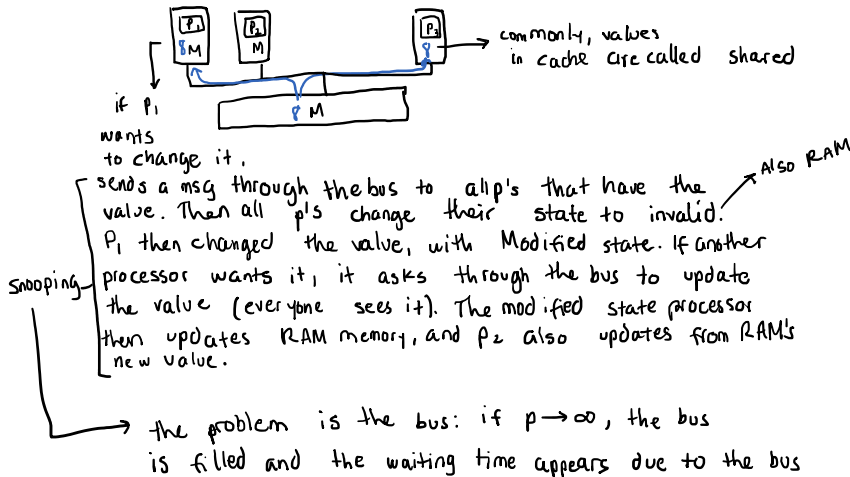 P1 P2 P3
8 M M 8
commonly, values
in cache are called shared
8 M
if P1
wants
to change it,
Also RAM
sends a msg through the bus to all p's that have the
value. Then all p's change their state to invalid.
P1 then changed the value, with Modified state. If another
processor wants it, it asks through the bus to update
the value (everyone sees it). The modified state processor
then updates RAM memory, and P2 also updates from RAM's
new value.
snooping
the problem is the bus: if p → ∞, the bus
is filled and the waiting time appears due to the bus